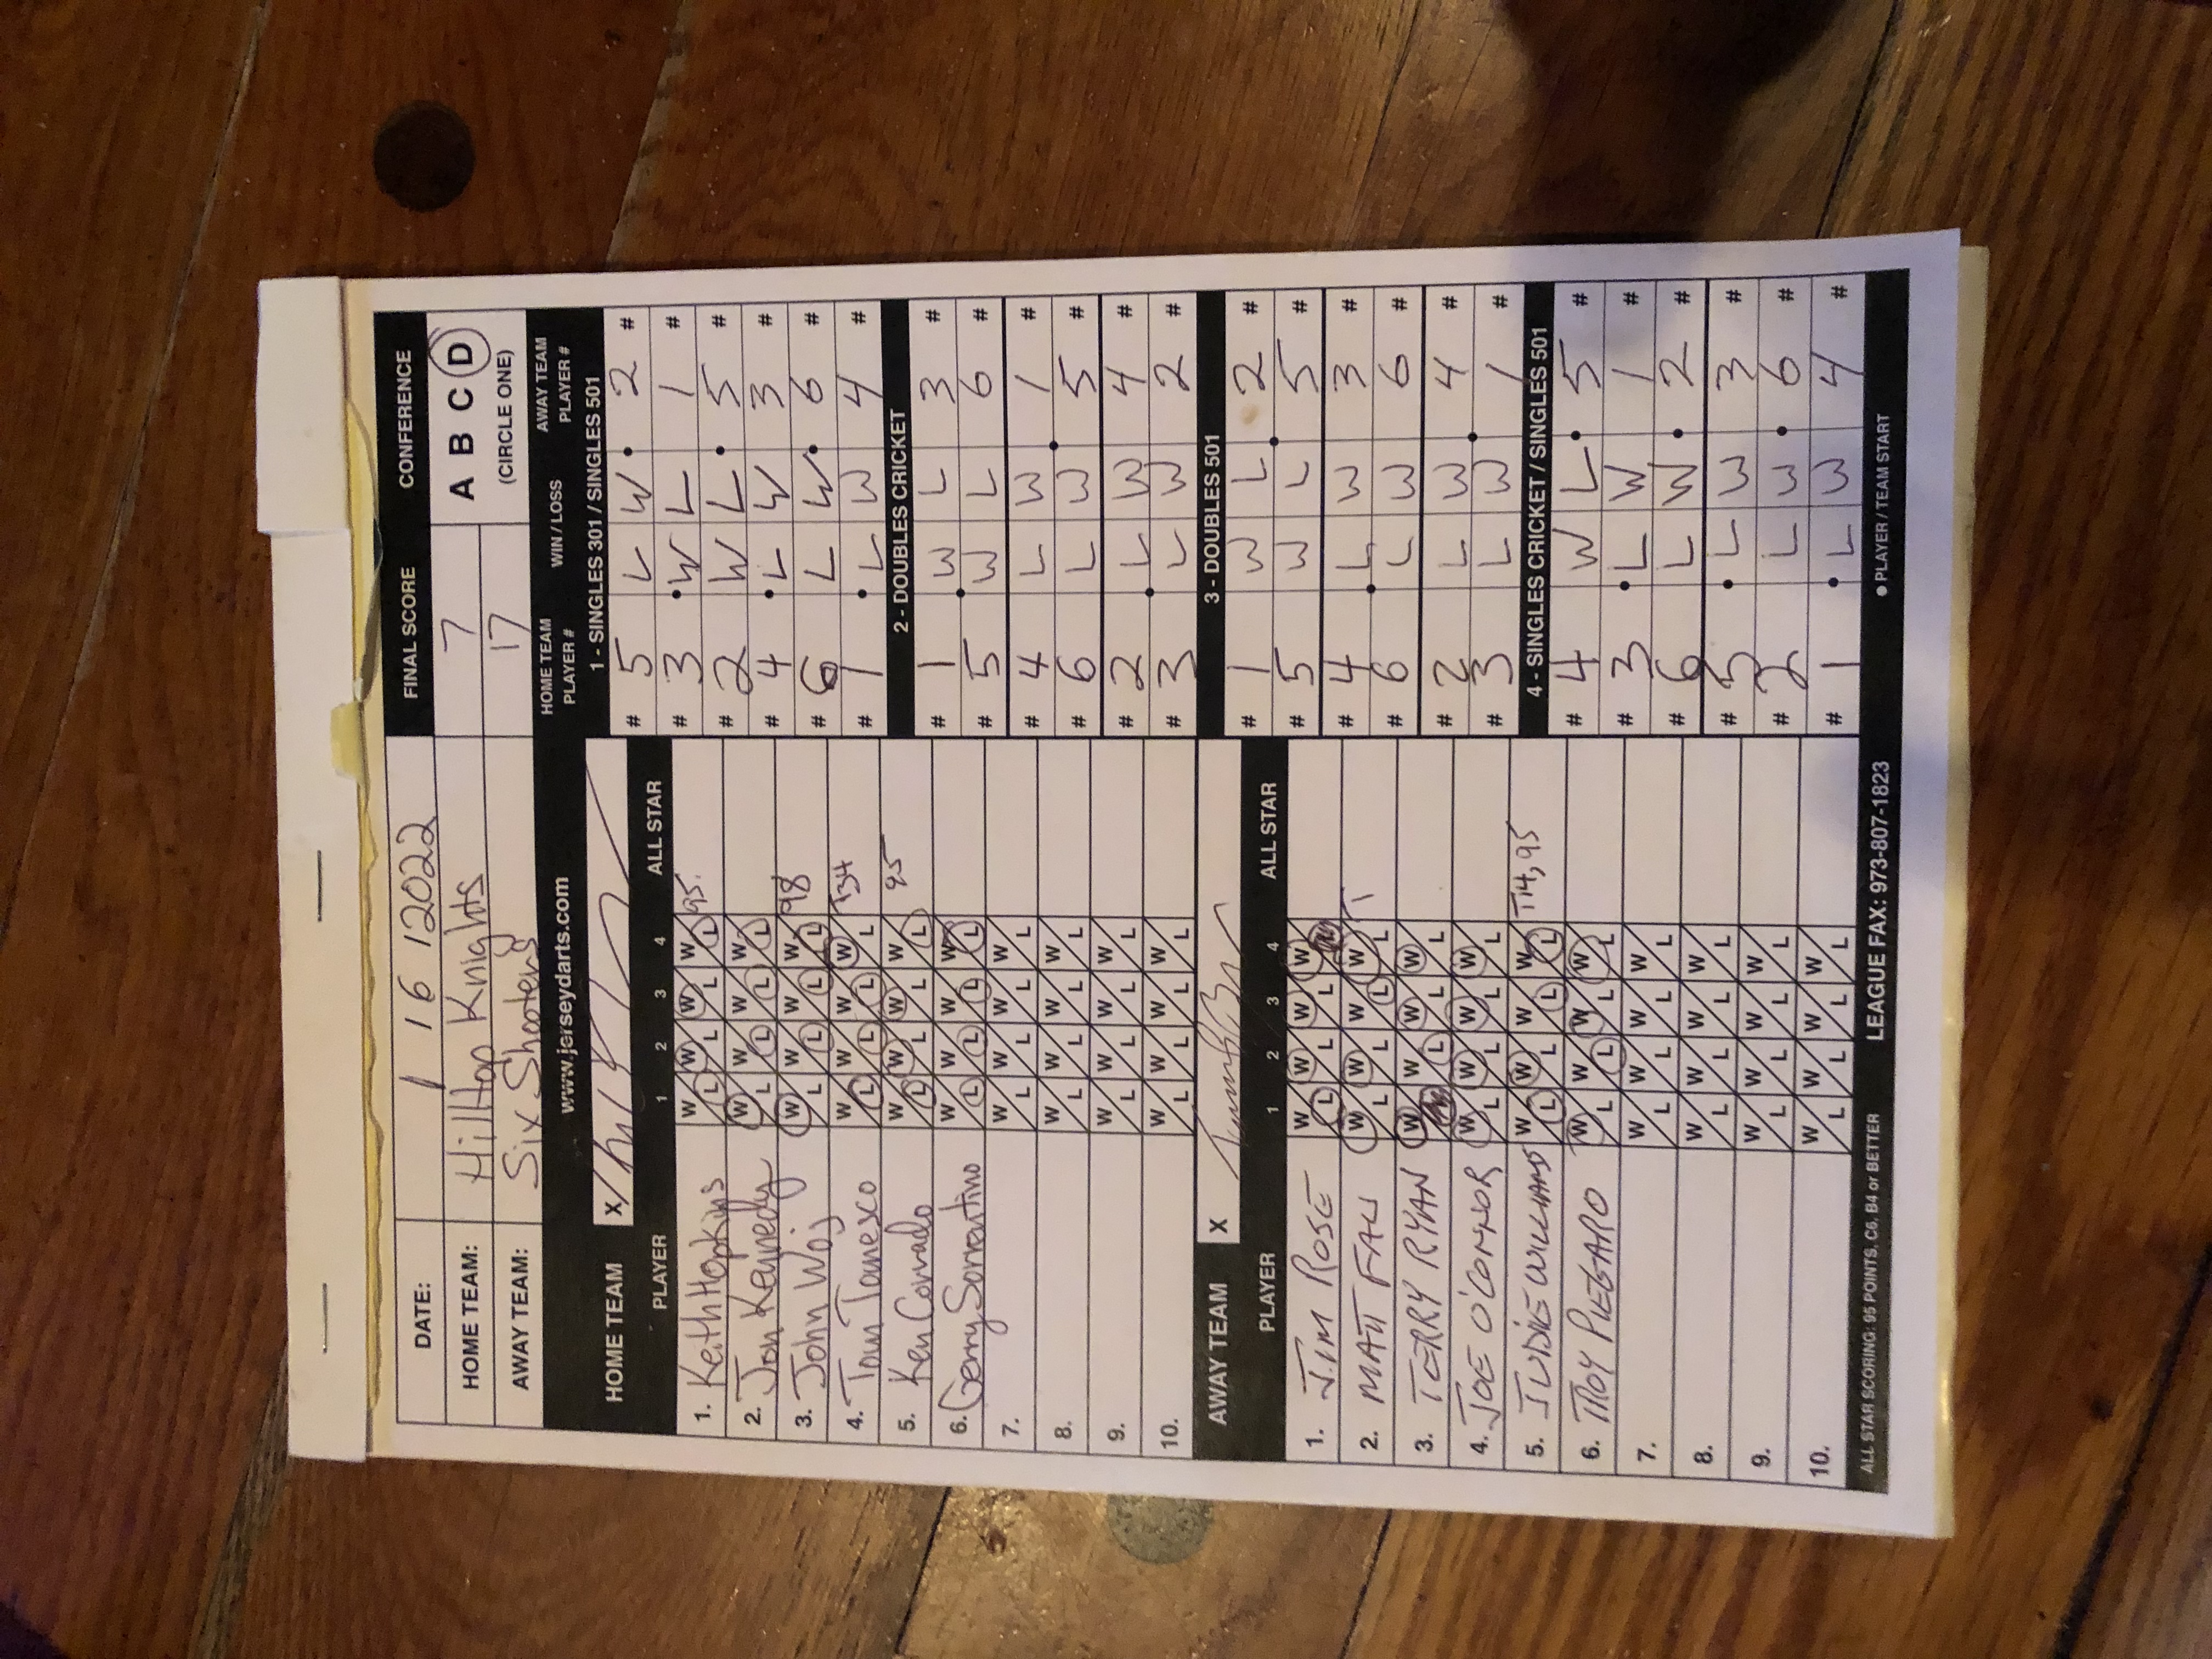 DATE: 1 / 6 / 2022 FINAL SCORE CONFERENCE
HOME TEAM: Hilltop Knights 7 A B C D
AWAY TEAM: Six Shooters 17 (CIRCLE ONE)
www.jerseydarts.com HOME TEAM PLAYER # WIN / LOSS AWAY TEAM PLAYER #
HOME TEAM X
PLAYER 1 2 3 4 ALL STAR
1. Keith Hopkins W L W L W L W L 95
2. Jon Kennedy W L W L W L W L
3. John Woj W L W L W L W L 98
4. Tom Tomesco W L W L W L W L T34
5. Ken Corrado W L W L W L W L 95
6. Gerry Sorrentino W L W L W L W L
7. W L W L W L W L
8. W L W L W L W L
9. W L W L W L W L
10. W L W L W L W L
AWAY TEAM X
PLAYER 1 2 3 4 ALL STAR
1. JIM ROSE W L W L W L W L
2. MATT FALI W L W L W L W L T1
3. TERRY RYAN W L W L W L W L
4. JOE O'CONNOR W L W L W L W L
5. JUDIE WILLIAMS W L W L W L W L T14, 95
6. TROY PIEGARO W L W L W L W L
7. W L W L W L W L
8. W L W L W L W L
9. W L W L W L W L
10. W L W L W L W L
1 - SINGLES 301 / SINGLES 501
# 5 L W • 2 #
# 3 • W L 1 #
# 2 W L • 5 #
# 4 • L W 3 #
# 6 L W • 6 #
# 1 • L W 4 #
2 - DOUBLES CRICKET
# 1 W L 3 #
# 5 • W L 6 #
# 4 L W 1 #
# 6 L W • 5 #
# 2 L W 4 #
# 3 • L W 2 #
3 - DOUBLES 501
# 1 W L 2 #
# 5 W L • 5 #
# 4 L W 3 #
# 6 • L W 6 #
# 2 L W 4 #
# 3 L W • 1 #
4 - SINGLES CRICKET / SINGLES 501
# 4 W L • 5 #
# 3 • L W 1 #
# 6 L W • 2 #
# 5 • L W 3 #
# 2 L W • 6 #
# 1 • L W 4 #
ALL STAR SCORING: 95 POINTS, C6, B4 or BETTER LEAGUE FAX: 973-807-1823 ● PLAYER / TEAM START